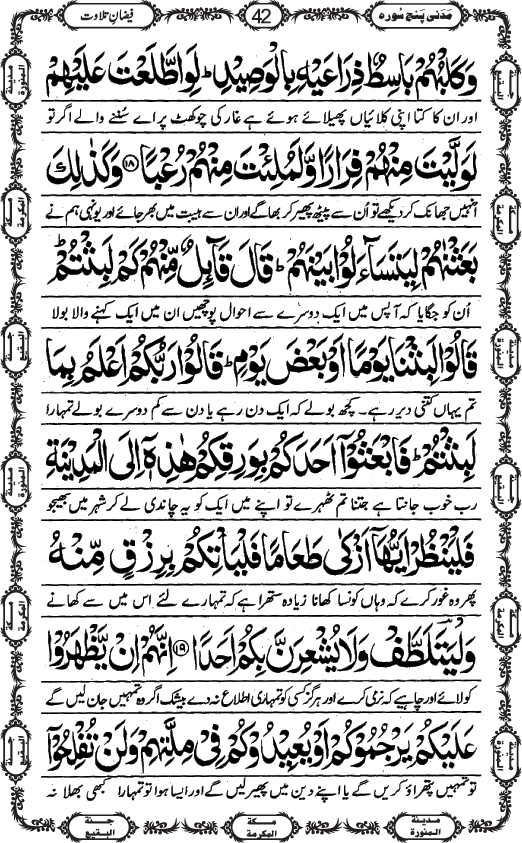 مَدَنی پنج سُورہ
42
فیضانِ تلاوت
وَكَلْبُهُمْ بَاسِطٌ ذِرَاعَيْهِ بِالْوَصِيْدِ ؕ لَوِ اطَّلَعْتَ عَلَيْهِمْ
اور ان کا کتا اپنی کلائیاں پھیلائے ہوئے ہے غار کی چوکھٹ پر اے سُننے والے اگر تو
لَوَلَّيْتَ مِنْهُمْ فِرَارًا وَّلَمُلِئْتَ مِنْهُمْ رُعْبًا ﴿۱۸﴾ وَكَذٰلِكَ
انہیں جھانک کر دیکھے تو اُن سے پیٹھ پھیر کر بھاگے اور ان سے ہیبت میں بھر جائے اور یونہی ہم نے
بَعَثْنٰهُمْ لِيَتَسَآءَلُوْا بَيْنَهُمْ ؕ قَالَ قَآىِٕلٌ مِّنْهُمْ كَمْ لَبِثْتُمْ ؕ
اُن کو جگایا کہ آپس میں ایک دوسرے سے احوال پوچھیں ان میں ایک کہنے والا بولا
قَالُوْا لَبِثْنَا يَوْمًا اَوْ بَعْضَ يَوْمٍ ؕ قَالُوْا رَبُّكُمْ اَعْلَمُ بِمَا
تم یہاں کتنی دیر رہے۔ کچھ بولے کہ ایک دن رہے یا دن سے کم دوسرے بولے تمہارا
لَبِثْتُمْ ؕ فَابْعَثُوْۤا اَحَدَكُمْ بِوَرِقِكُمْ هٰذِهٖۤ اِلَى الْمَدِيْنَةِ
رب خوب جانتا ہے جتنا تم ٹھہرے تو اپنے میں ایک کو یہ چاندی لے کر شہر میں بھیجو
فَلْيَنْظُرْ اَيُّهَاۤ اَزْكٰى طَعَامًا فَلْيَاْتِكُمْ بِرِزْقٍ مِّنْهُ
پھر وہ غور کرے کہ وہاں کونسا کھانا زیادہ ستھرا ہے کہ تمہارے لئے اس میں سے کھانے
وَلْيَتَلَطَّفْ وَلَا يُشْعِرَنَّ بِكُمْ اَحَدًا ﴿۱۹﴾ اِنَّهُمْ اِنْ يَّظْهَرُوْا
کو لائے اور چاہیے کہ نرمی کرے اور ہرگز کسی کو تمہاری اطلاع نہ دے بیشک اگر وہ تمہیں جان لیں گے
عَلَيْكُمْ يَرْجُمُوْكُمْ اَوْ يُعِيْدُوْكُمْ فِيْ مِلَّتِهِمْ وَلَنْ تُفْلِحُوْۤا
تو تمہیں پتھراؤ کریں گے یا اپنے دین میں پھیر لیں گے اور ایسا ہوا تو تمہارا کبھی بھلا نہ
مدينة المنورة
مكة المكرمة
جنة البقيع